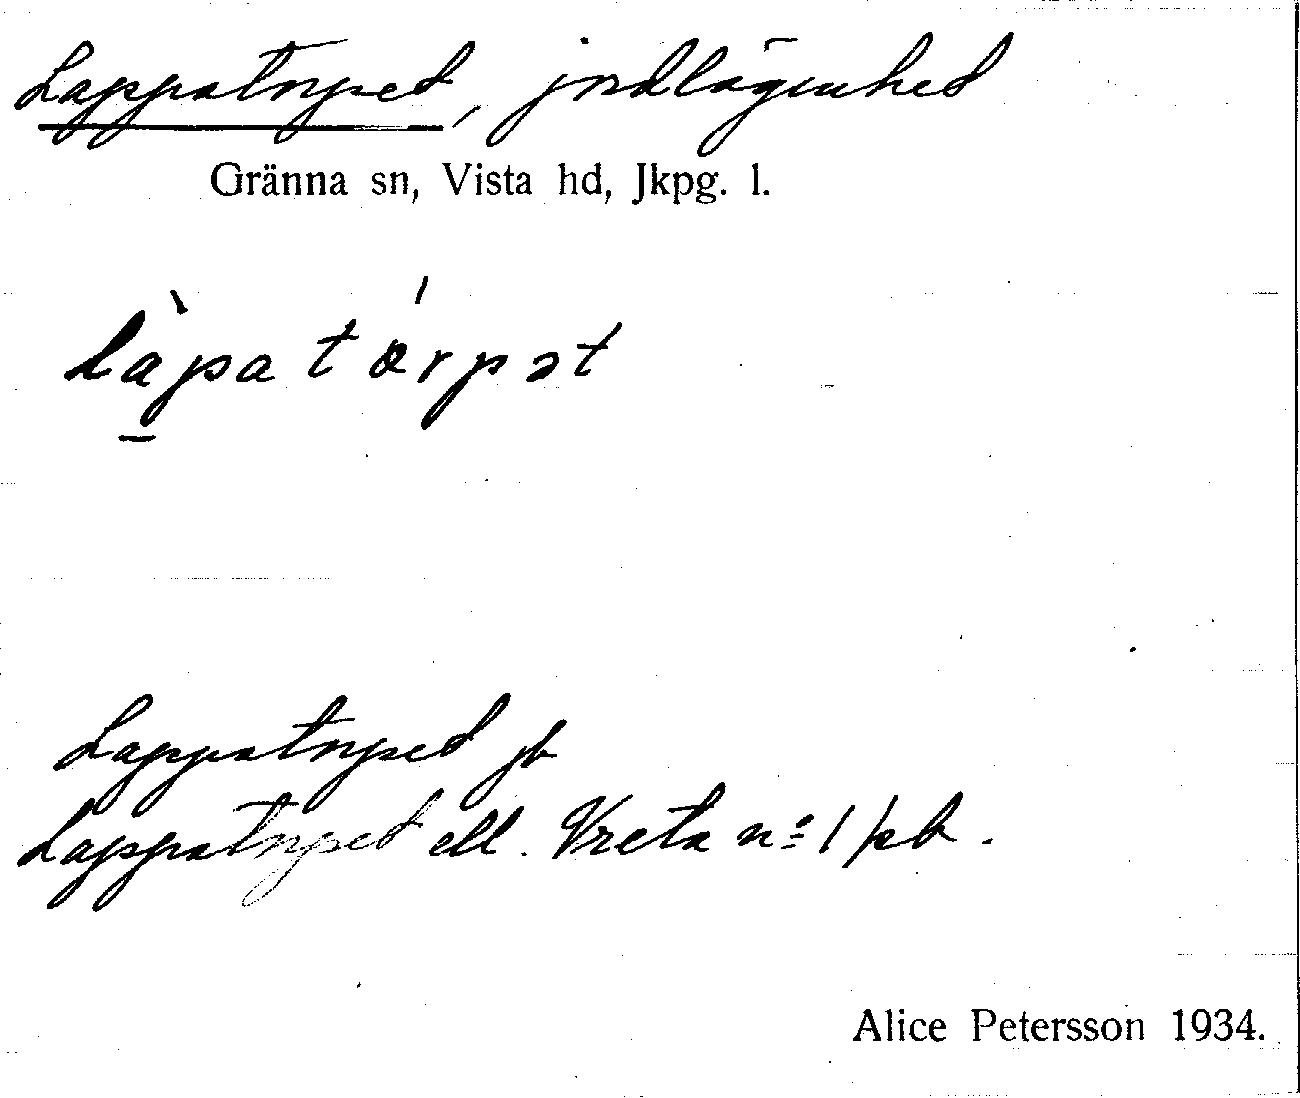 Lappatorpet, jordlägenhet
Gränna sn, Vista hd, Jkpg. l.
làpatǿrpət
Lappatorpet jb
Lappatorpet ell. Vreta no 1 kb.
Alice Petersson 1934.